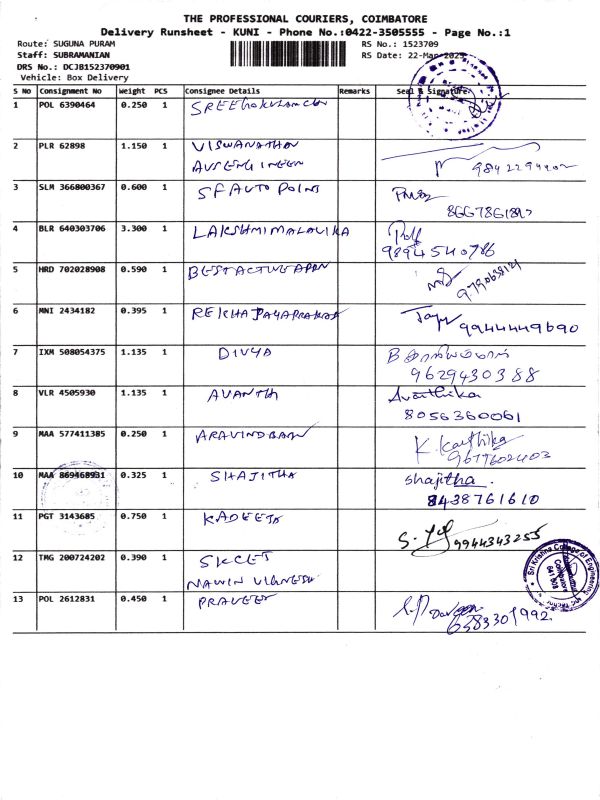 THE PROFESSIONAL COURIERS, COIMBATORE
Delivery Runsheet - KUNI - Phone No.:0422-3505555 - Page No.:1
Route: SUGUNA PURAM RS No.: 1523709
Staff: SUBRAMANIAN RS Date: 22-Mar-2025
DRS No.: DCJB152370901
Vehicle: Box Delivery
S No Consignment No Weight PCS Consignee Details Remarks Seal & Signature
1 POL 6390464 0.250 1
2 PLR 62898 1.150 1 VISWANATHAN
AVS ENGINEER
3 SLM 366800367 0.600 1 SF AUTO POINS
4 BLR 640303706 3.300 1 LAKSHMI MALAVIKA
9894540786
5 HRD 702028908 0.590 1 BEST ACTIVE APAN
6 MNI 2434182 0.395 1 REKHA JAYAPRAKASH
9944449690
7 IXM 508054375 1.135 1 DIVYA
9629430388
8 VLR 4505930 1.135 1 AVANTHI Avanthika
8056360061
9 MAA 577411385 0.250 1 ARAVIND K. Karthika
9677602403
10 MAA 869468931 0.325 1 SHAJITHA shajitha.
8438761610
11 PGT 3143685 0.750 1 KADEEJA
9944343255
12 TMG 200724202 0.390 1 SKCET
NAWIN VIGNESH
Sri Krishna College of Engineering
Coimbatore
641 008
13 POL 2612831 0.450 1 PRAVEEN